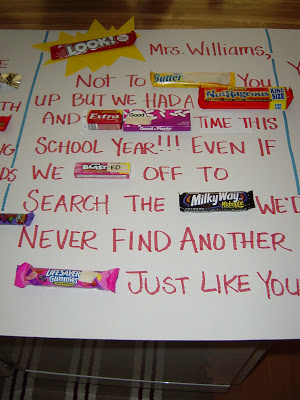 LOOK! Mrs. Williams,
Not to Butter You
up but we had a NutRageous KING SIZE
and Extra Good & Plenty time this
School Year!!! Even if
we BLASTED off to
Search the MilkyWay we'd
Never find another
LIFESAVERS Gummies just like you